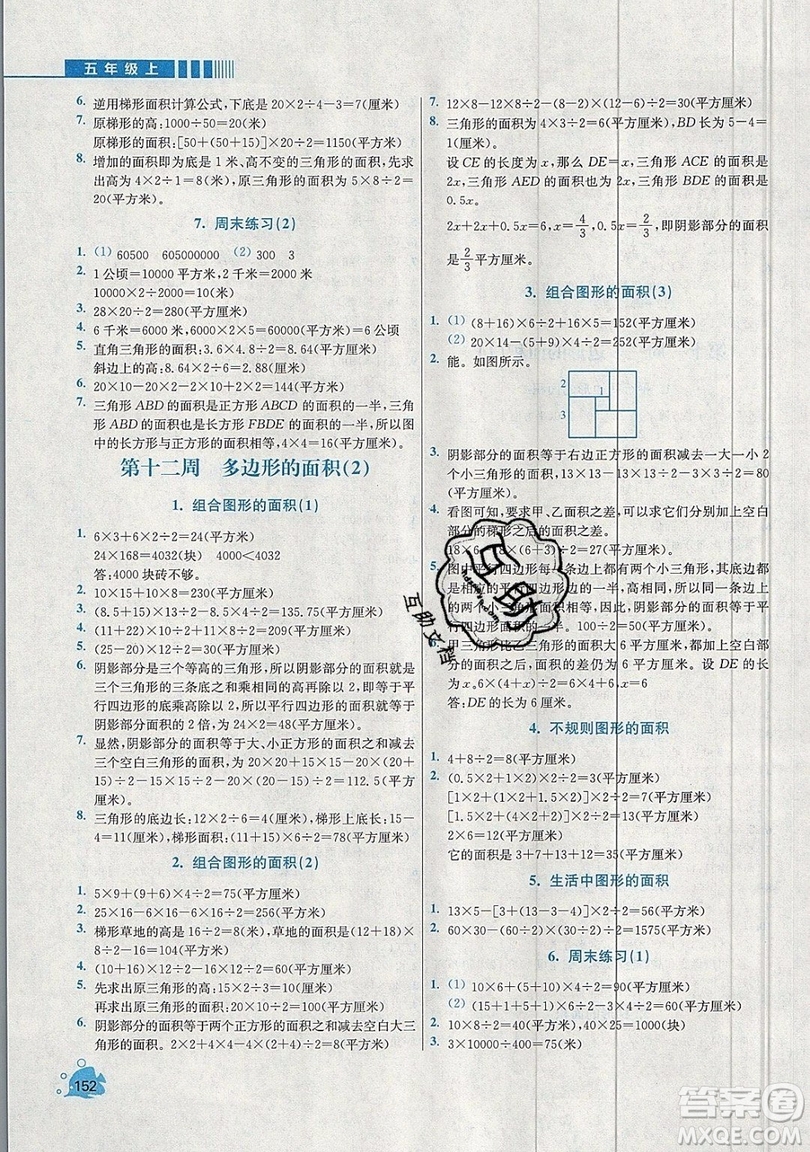 五年级上
6. 逆用梯形面积计算公式,下底是20×2÷4-3=7(厘米)
7. 原梯形的高:1000÷50=20(米)
原梯形面积:[50+(50+15)]×20÷2=1150(平方米)
8. 增加的面积即为底是1米、高不变的三角形的面积,先求
出高为4×2÷1=8(米),原三角形的面积5×8÷2=
20(平方米)。
7. 周末练习(2)
1. (1) 60500 605000000 (2) 300 3
2. 1公顷=10000平方米,2千米=2000米
10000×2÷2000=10(米)
3. 28×20÷2=280(平方厘米)
4. 6千米=6000米,6000×20÷2=60000(平方米)=6公顷
5. 直角三角形的面积:3.6×4.8÷2=8.64(平方厘米)
斜边上的高:8.64×2÷6=2.88(厘米)
6. 20×10-20×2-10×2+2×2=144(平方米)
7. 三角形ABD的面积是正方形ABCD的面积的一半,三角
形ABD的面积也是长方形FBDE的面积的一半,所以图
中的长方形与正方形的面积相等,4×4=16(平方厘米)。
第十二周 多边形的面积(2)
1. 组合图形的面积(1)
1. 6×3+6×2÷2=24(平方米)
24×168=4032(块) 4000<4032
答:4000块砖不够。
2. 10×15+10×8÷2=230(平方厘米)
3. (8.5+15)×13÷2-13×2.6÷2=135.75(平方厘米)
4. (11+22)×10÷2-11×10÷2=110(平方厘米)
5. (25-20)×12÷2=30(平方厘米)
6. 阴影部分是三个等高的三角形,所以阴影部分的面积是
三个三角形的三条底之和乘相同的高再除以2,即等于平
行四边形的底乘高除以2,所以平行四边形的面积就等于
阴影部分面积的2倍,为24×2=48(平方厘米)。
7. 显然,阴影部分的面积等于大、小正方形的面积之和减去
三个空白三角形的面积,为20×20+15×15-20×(20+
15)÷2-15×15÷2-20×(20-15)÷2=
112.5(平方厘米)。
8. 三角形的底边长:12×2÷6=4(厘米),梯形上底长:15-
4=11(厘米),梯形面积:(11+15)×6÷2=78(平方厘米)
2. 组合图形的面积(2)
1. 5×9+(9+6)×4÷2=75(平方厘米)
2. 25×16-6×16÷2-16×6÷2=256(平方厘米)
3. 梯形草地的高是16×2÷4=8(米),草地的面积是(12+16)×
8÷2-16=96(平方米)
4. (10+6)×10÷2-10×10÷2=30(平方厘米)
5. 先求出原三角形的高:15×2÷3=10(厘米)
再求出原三角形的面积:20×10÷2=100(平方厘米)
6. 阴影部分的面积等于两个正方形的面积减去空白大三
角形的面积。2×2+4×4-4×(2+4)÷2=8(平方厘米)
152
7. 12×8-12×8÷2-(8÷2)×(12-8)÷2=30(平方厘米)
8. 三角形的面积为4×3÷2=6(平方厘米),BD长为5-4=
1(厘米)。
设CE的长度为x,那么DE=x,三角形ACE的面积是
2x,三角形AED的面积也是2x,三角形BDE的面积是
0.5x。
2x+2x+0.5x=6,x=4/3,0.5x=2/3,即阴影部分的面积
是2/3平方厘米。
3. 组合图形的面积(3)
1. (1) (8+16)×6÷2+16×5=152(平方厘米)
(2) 20×14-(4+10)×4÷2=252(平方厘米)
2. 能。如图所示。
2
1
3
3. 阴影部分的面积等于右边正方形的面积减去一大一小2
个小三角形的面积,13×13-13×13÷2-3×3÷2=80
(平方厘米)。
4. 看图可知,要求甲、乙面积之差,可以求它们分别加上空白
部分的梯形之后的面积之差。
18×6÷2-6×(6+3)÷2=27(平方厘米)。
5. 图中平行四边形每一条边上的三角形面积之和都是
是相应的平行四边形面积的一半,所以阴影部分面积也是
平行四边形面积的一半。100÷2=50(平方厘米)
甲三角形比乙三角形的面积大6平方厘米,都加上空白部
分的面积之后,面积的差仍为6平方厘米。设DE的长为
x。6×(4+x)÷2-6×4÷2=6,x=6
答:DE的长为6厘米。
4. 不规则图形的面积
1. 4+8÷2=8(平方厘米)
2. (0.5×2+1×2)×2÷2=3(平方厘米)
[1×2+(1×2+1.5×2)]×2÷2=7(平方厘米)
[1.5×2+(4×2+2)]×2÷2=13(平方厘米)
2×6=12(平方厘米)
它的面积是3+7+13+12=35(平方厘米)
5. 生活中图形的面积
1. 13×5-[3+(13-3-4)]×2÷2=56(平方米)
2. 60×30-(60÷2)×(30÷2)÷2=1575(平方米)
6. 周末练习(1)
1. (1) 10×6+(5+10)×4÷2=90(平方厘米)
(2) (15+1+5+1)×6÷2-1×6=60(平方厘米)
2. 10×8÷2=40(平方米),40×25=1000(块)
3. 3×10-10×4÷2=10(平方厘米)
互助
互助文档
答案圈
MXQE.COM